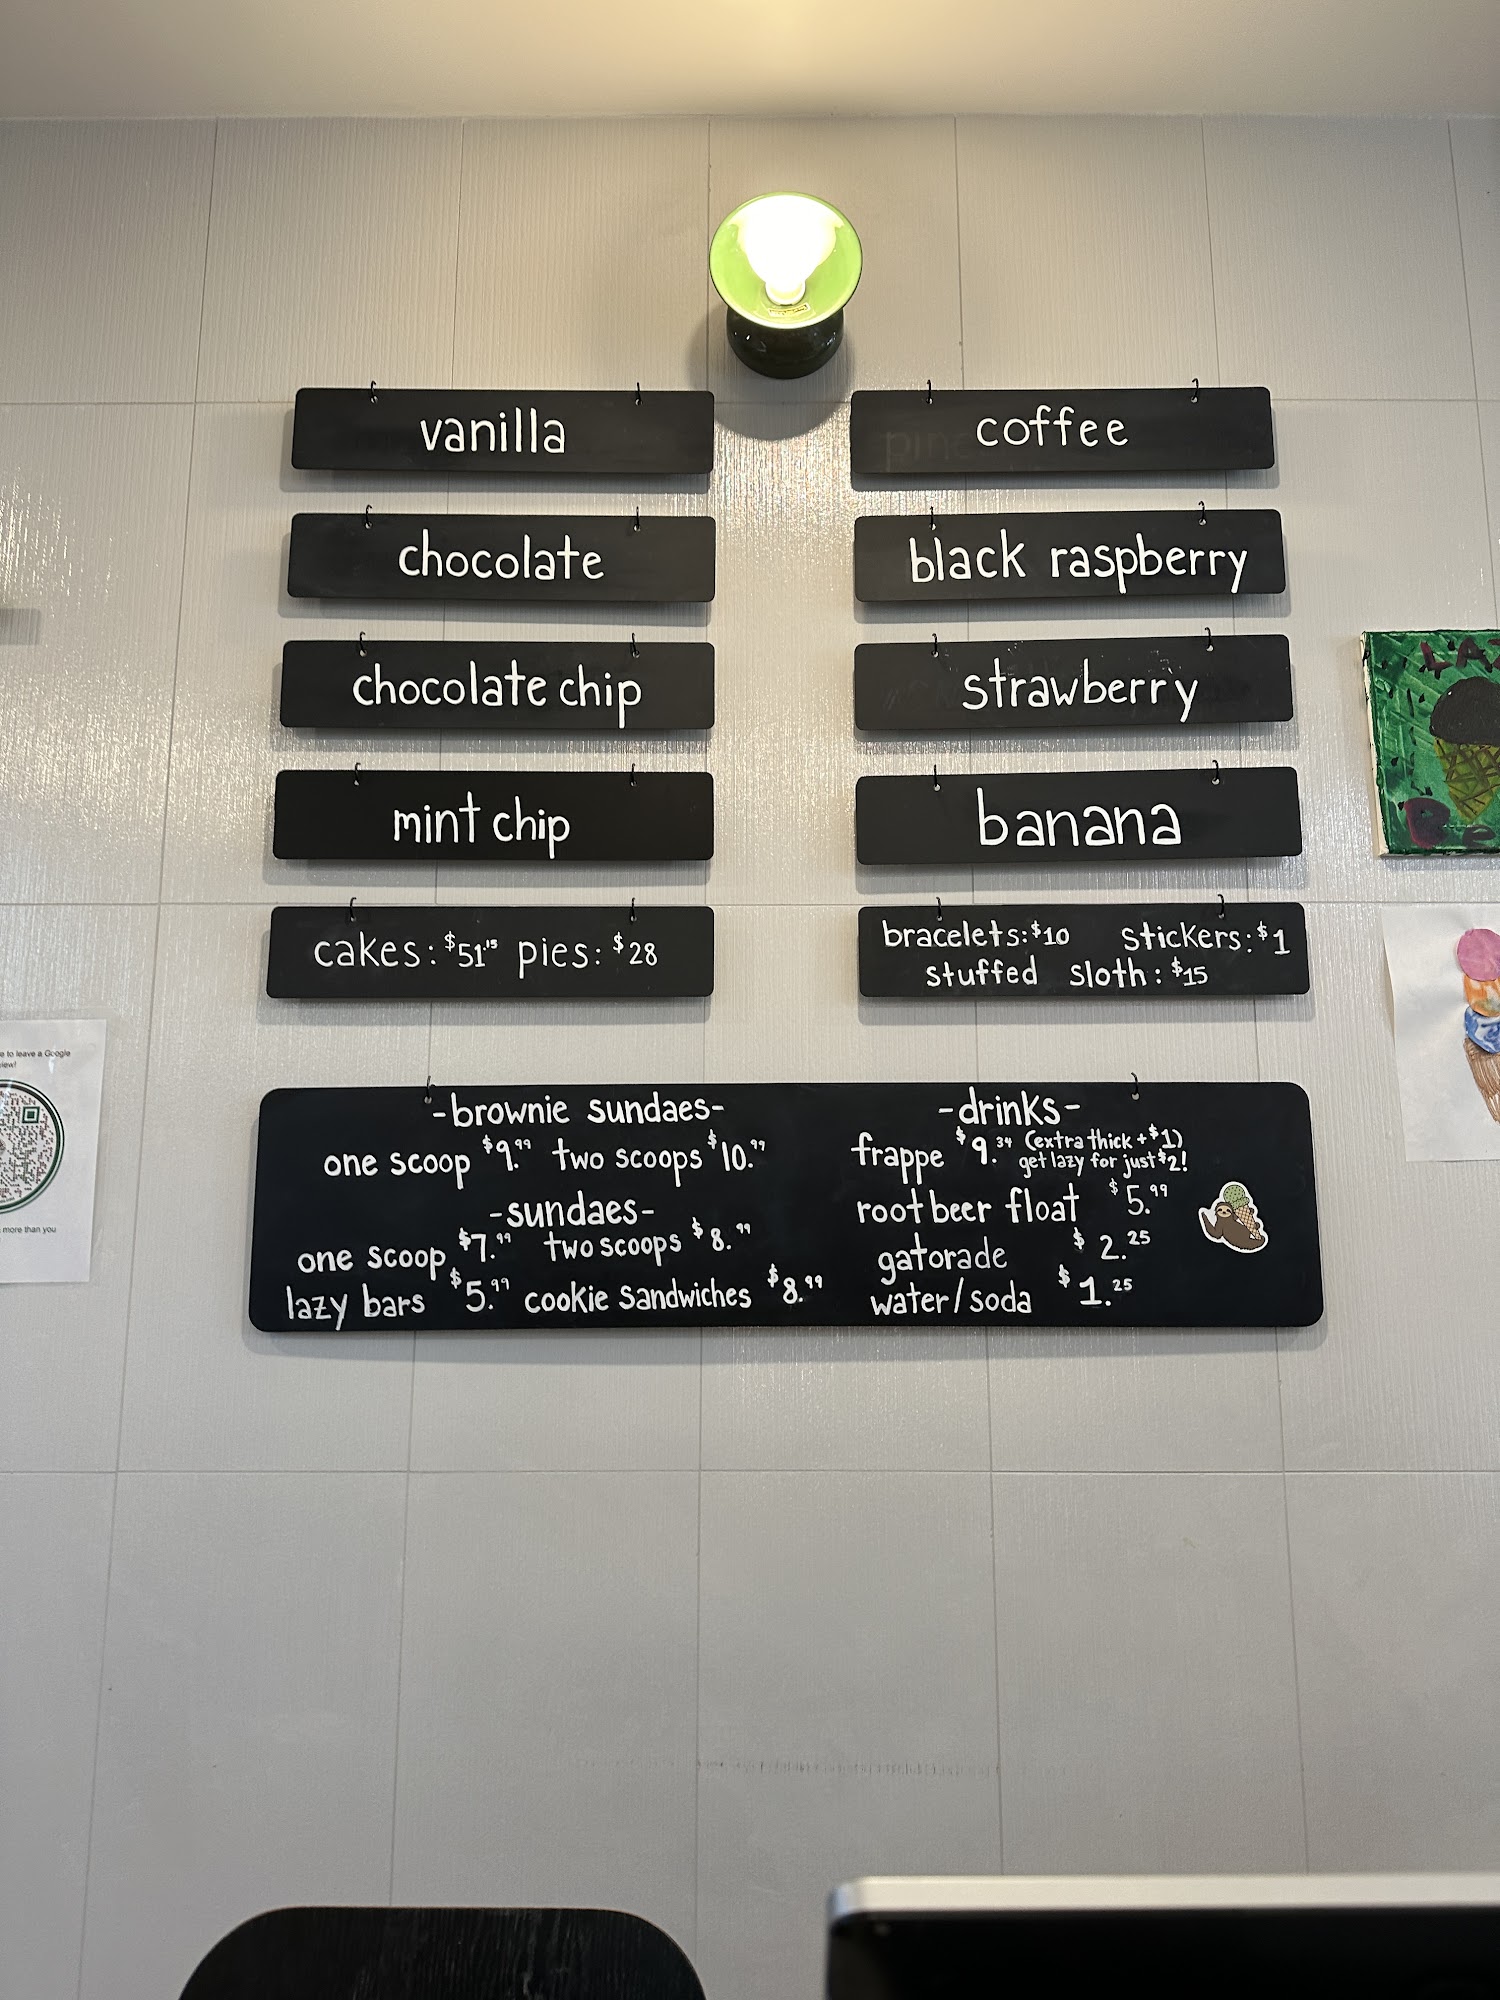 vanilla
chocolate
chocolate chip
mint chip
cakes: $51.15 pies: $28
coffee
black raspberry
strawberry
banana
bracelets: $10 stickers: $1
stuffed sloth: $15
-brownie sundaes-
one scoop $9.99 two scoops $10.99
-sundaes-
one scoop $7.99 two scoops $8.99
lazy bars $5.99 cookie sandwiches $8.99
-drinks-
frappe $9.34 (extra thick + $1)
get lazy for just $2!
root beer float $5.99
gatorade $2.25
water/soda $1.25
e to leave a Google
more than you
LAZ
Be